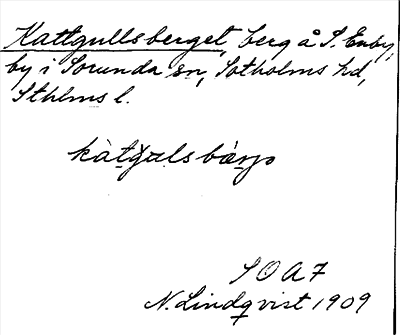 Kattgullsberget, berg å S. Enby,
by i Sorunda sn, Sotholms hd,
Sthlms l.
kàtgulsbárjo
SOA7
N. Lindqvist 1909